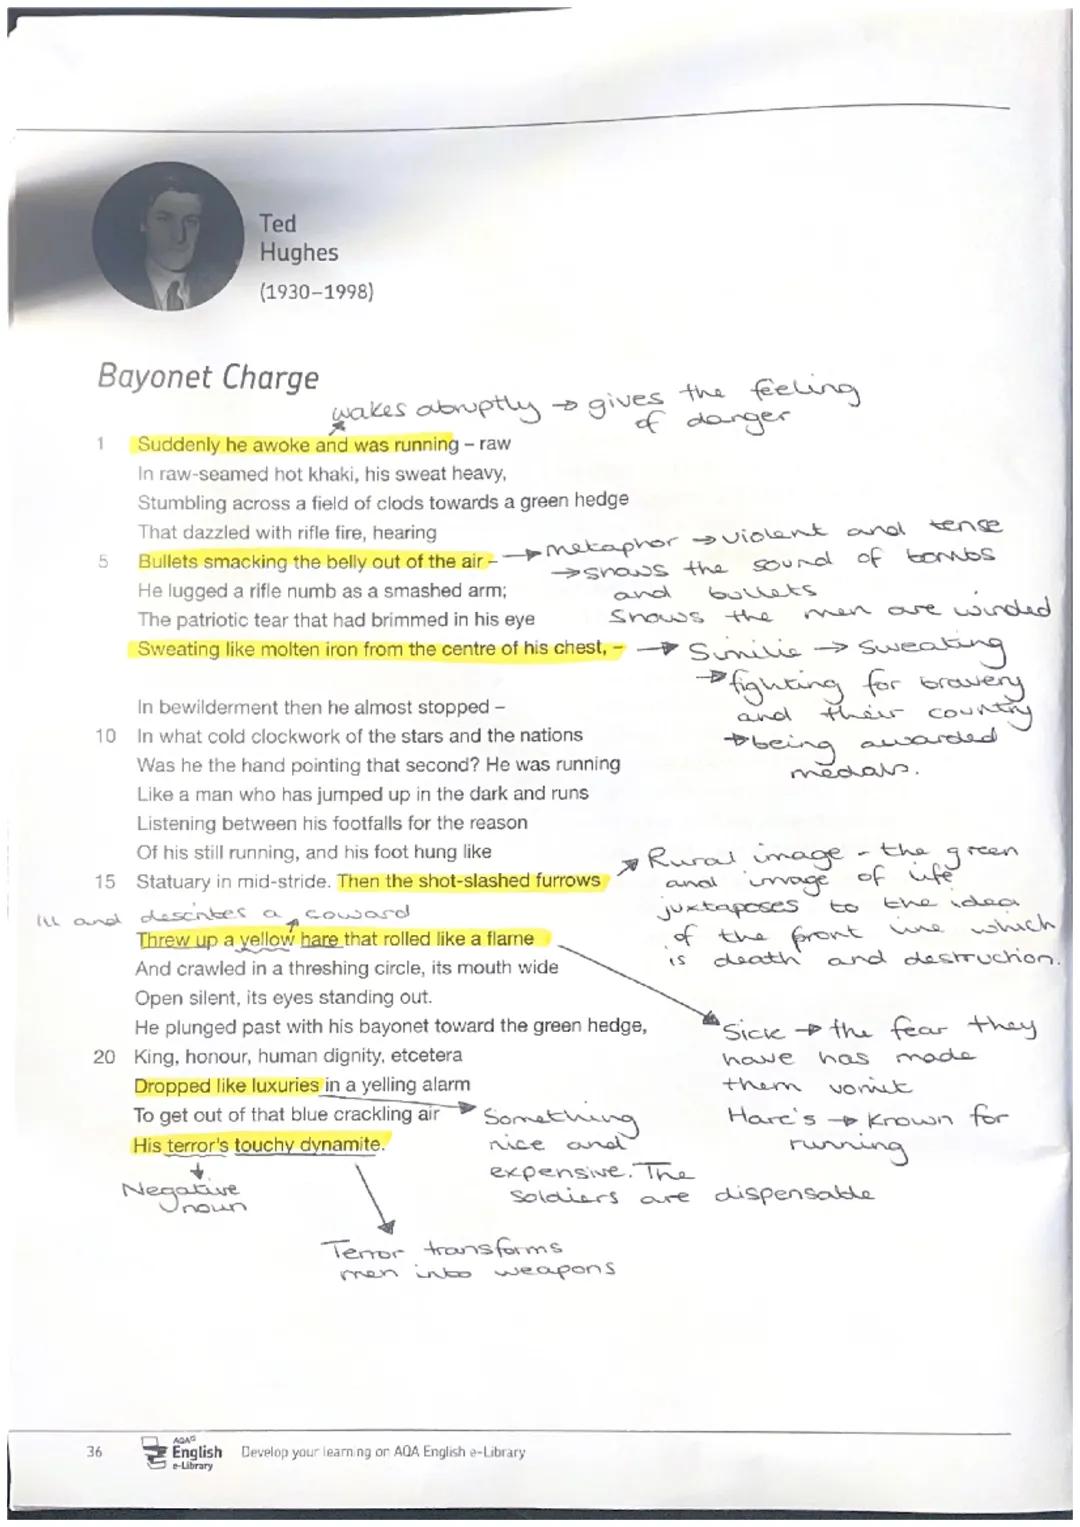 Ted
Hughes
(1930–1998)
Bayonet Charge
wakes abruptly → gives the feeling
of danger
1 Suddenly he awoke and was running – raw
In raw-seamed hot khaki, his sweat heavy,
Stumbling across a field of clods towards a green hedge
That dazzled with rifle fire, hearing
5 Bullets smacking the belly out of the air –
→ metaphor → violent and tense
→ shows the sound of bombs
and bullets
Shows the men are winded
He lugged a rifle numb as a smashed arm;
The patriotic tear that had brimmed in his eye
Sweating like molten iron from the centre of his chest, –
→ Similie → Sweating
→ fighting for bravery
and their country
→ being awarded
medals.
In bewilderment then he almost stopped –
10 In what cold clockwork of the stars and the nations
Was he the hand pointing that second? He was running
Like a man who has jumped up in the dark and runs
Listening between his footfalls for the reason
Of his still running, and his foot hung like
15 Statuary in mid-stride. Then the shot-slashed furrows
Rural image - the green
and image of life
juxtaposes to the idea
of the front line which
is death and destruction.
Ill and describes a coward
Threw up a yellow hare that rolled like a flame
And crawled in a threshing circle, its mouth wide
Open silent, its eyes standing out.
He plunged past with his bayonet toward the green hedge,
Sick → the fear they
have has made
them vomit
Hare's → Known for
running
20 King, honour, human dignity, etcetera
Dropped like luxuries in a yelling alarm
To get out of that blue crackling air
His terror's touchy dynamite.
Something
nice and
expensive. The
soldiers are dispensable
Negative
noun
Terror transforms
men into weapons
36
AQA
English
e-Library
Develop your learning on AQA English e-Library